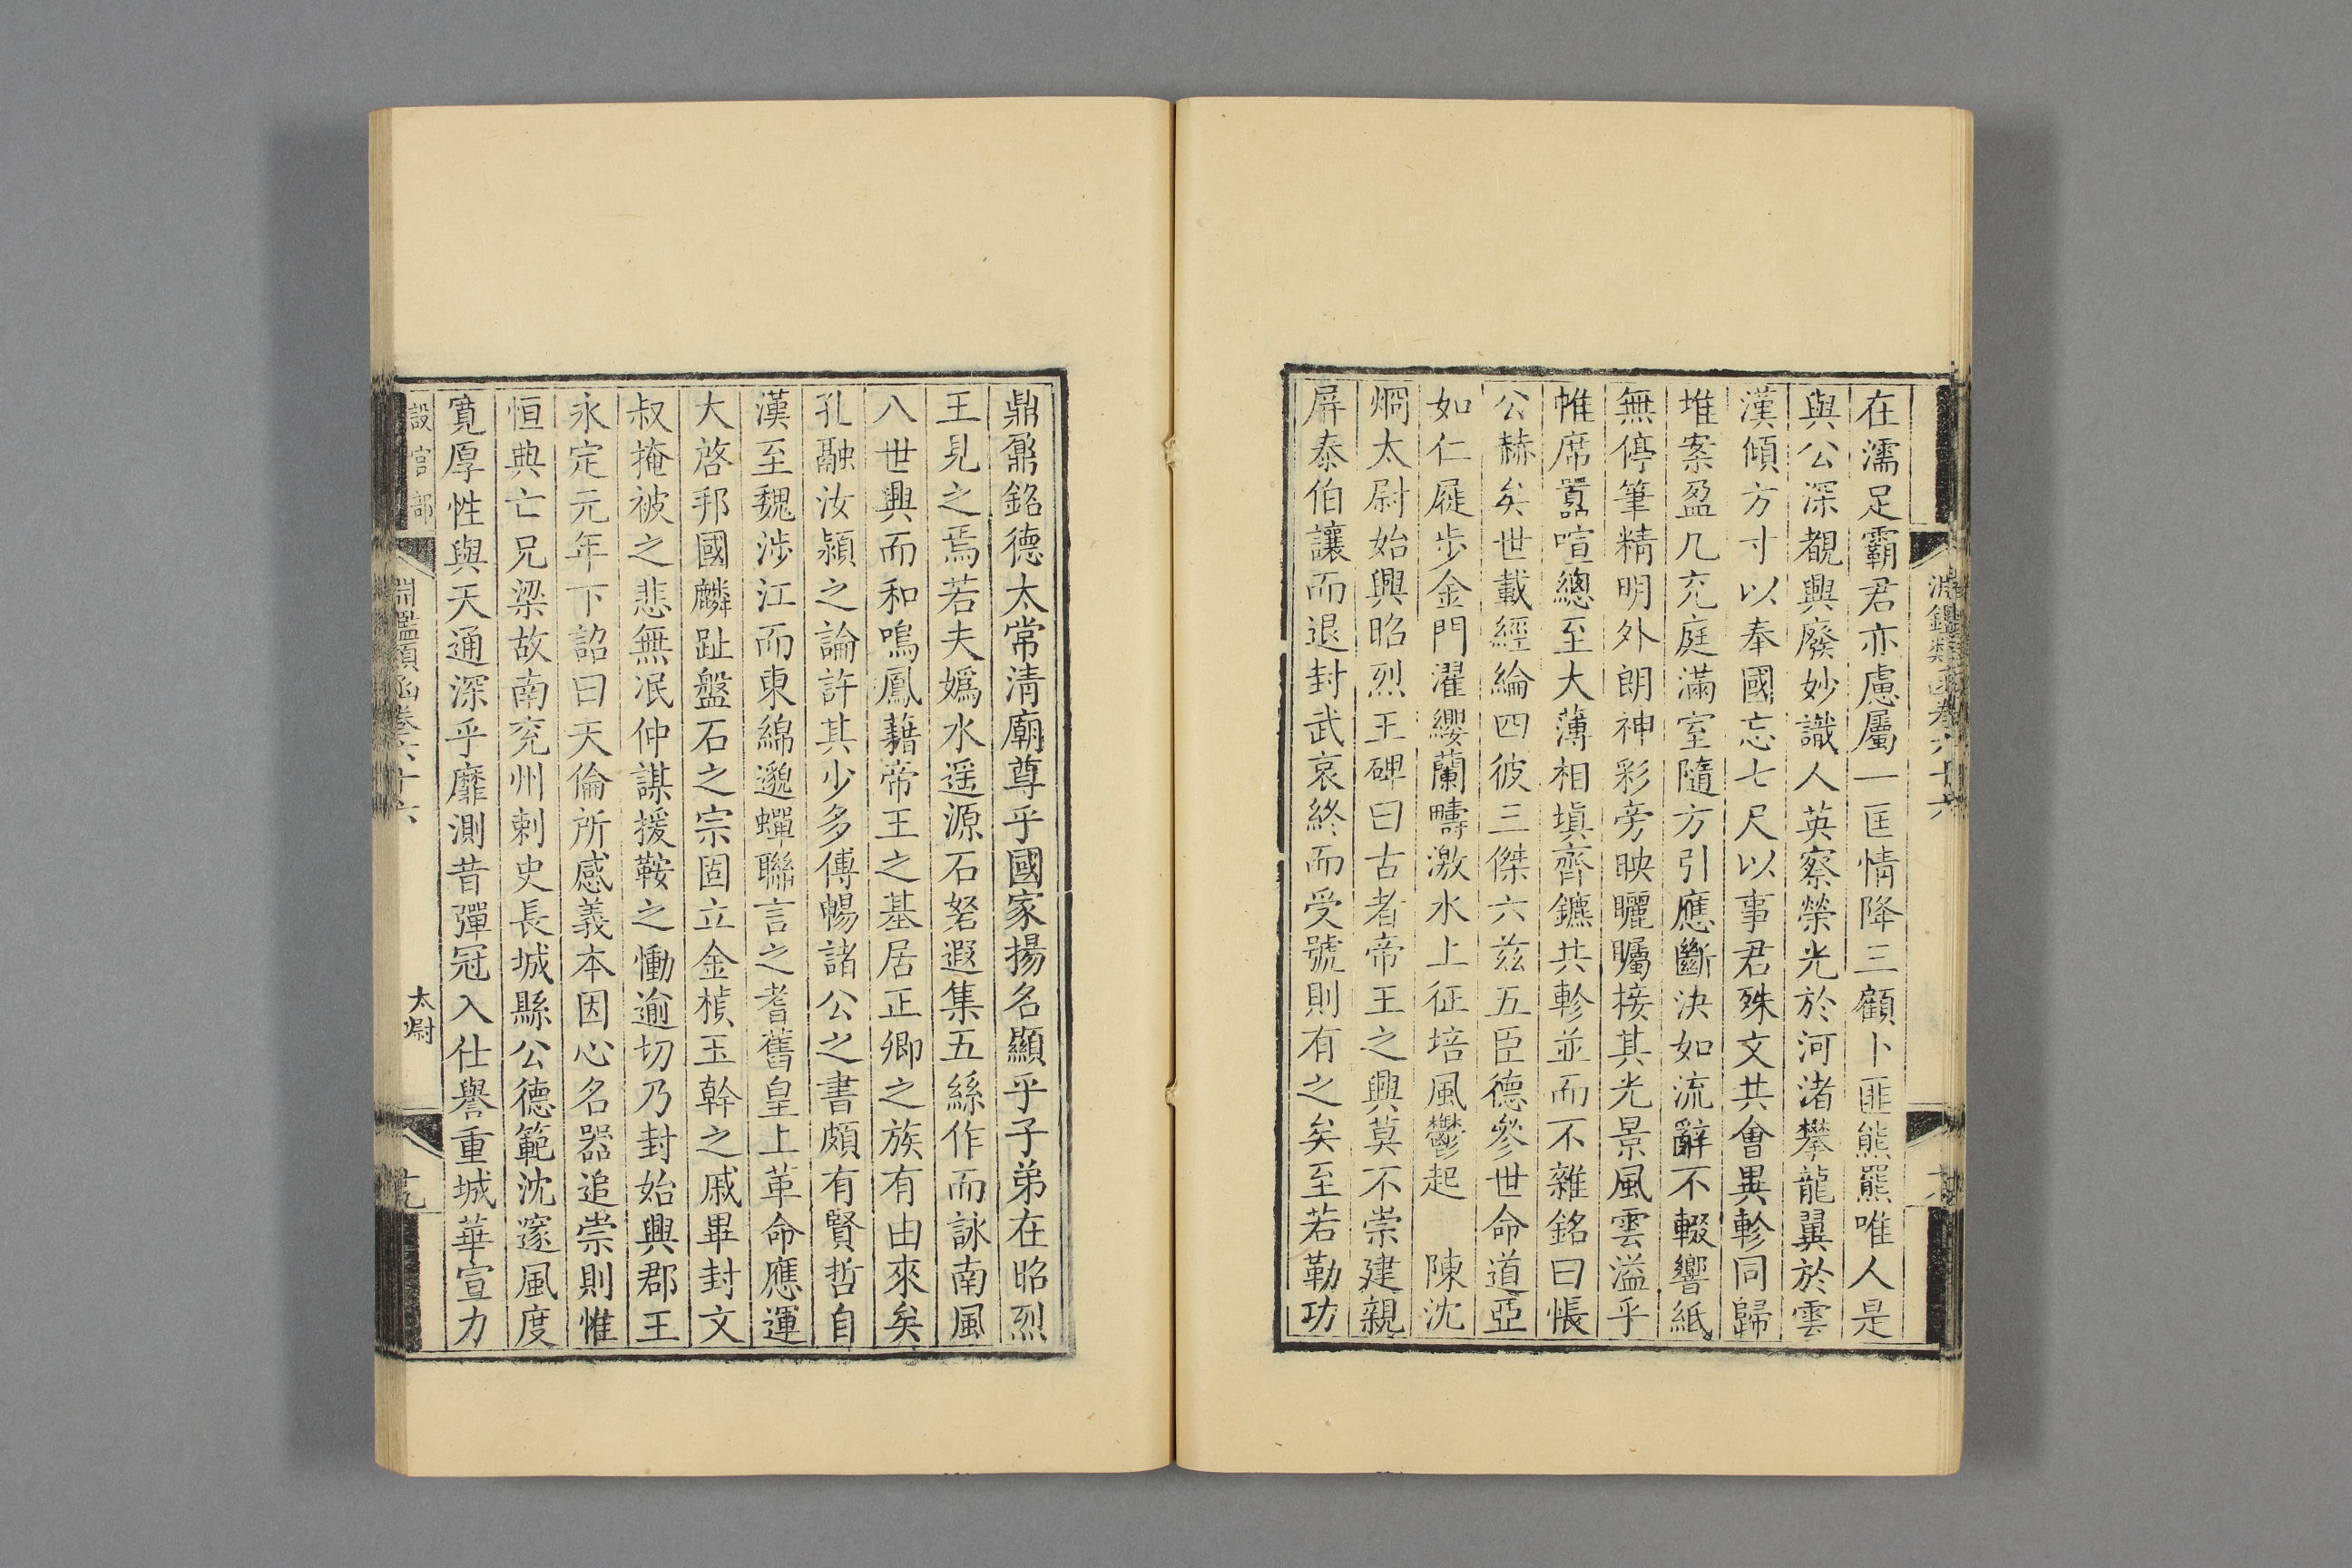 在濡足霸君亦慮屬一匡情降三顧卜匪熊羆唯人是
與公深覩興廢妙識人英察榮光於河渚攀龍翼於雲
漢傾方寸以奉國忘七尺以事君殊文共會異軫同歸
堆案盈几充庭滿室隨方引應斷決如流辭不輟響紙
無停筆精明外朗神彩旁映矖矚接其光景風雲溢乎
帷席囂喧總至大薄相塡齊鑣共軫並而不雜銘曰悵
公赫矣世載經綸四彼三傑六茲五臣德參世命道亞
如仁屣步金門濯纓蘭疇激水上征培風鬱起　陳沈
烱太尉始興昭烈王碑曰古者帝王之興莫不崇建親
屏泰伯讓而退封武哀終而受號則有之矣至若勒功
鼎鼐銘德太常清廟尊乎國家揚名顯乎子弟在昭烈
王見之焉若夫嬀水遥源石砮遐集五絲作而詠南風
八世興而和鳴鳳藉帝王之基居正卿之族有由來矣
孔融汝潁之論許其少多傅暢諸公之書頗有賢哲自
漢至魏涉江而東綿邈蟬聯言之耆舊皇上革命應運
大啓邦國麟趾盤石之宗固立金楨玉幹之戚畢封文
叔掩被之悲無泯仲謀援鞍之慟逾切乃封始興郡王
永定元年下詔曰天倫所感義本因心名器追崇則惟
恒典亡兄梁故南兖州刺史長城縣公德範沈邃風度
寬厚性與天通深乎靡測昔彈冠入仕譽重城華宣力
設官部
淵鑑類函卷六十六
太尉
十九